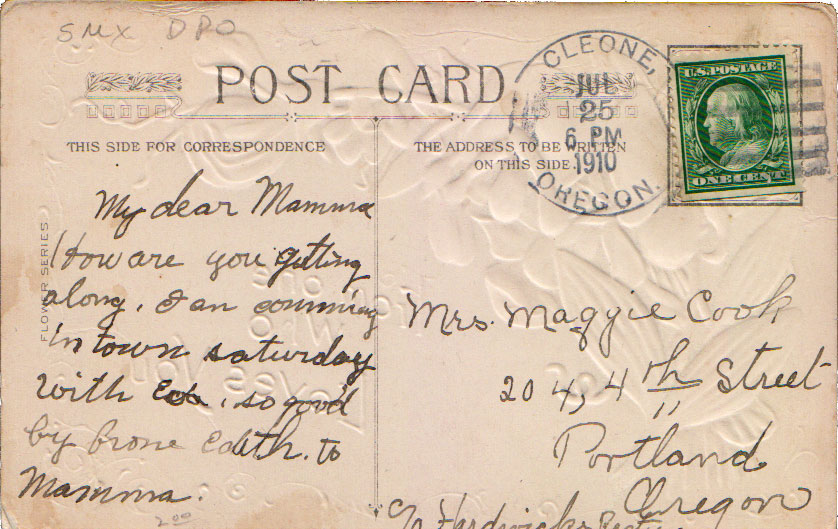 SMX DPO
POST CARD
CLEONE,
JUL
25
6 PM
1910
OREGON.
U.S. POSTAGE
ONE CENT
THIS SIDE FOR CORRESPONDENCE
THE ADDRESS TO BE WRITTEN
ON THIS SIDE.
FLOWER SERIES
My dear Mamma
How are you getting
along. I an comming
in town saturday
with . so good
by frone Edith. to
Mamma.
2.00
Mrs. Maggie Cook
204, 4th Street
Portland
Oregon
C/o Hardwicks